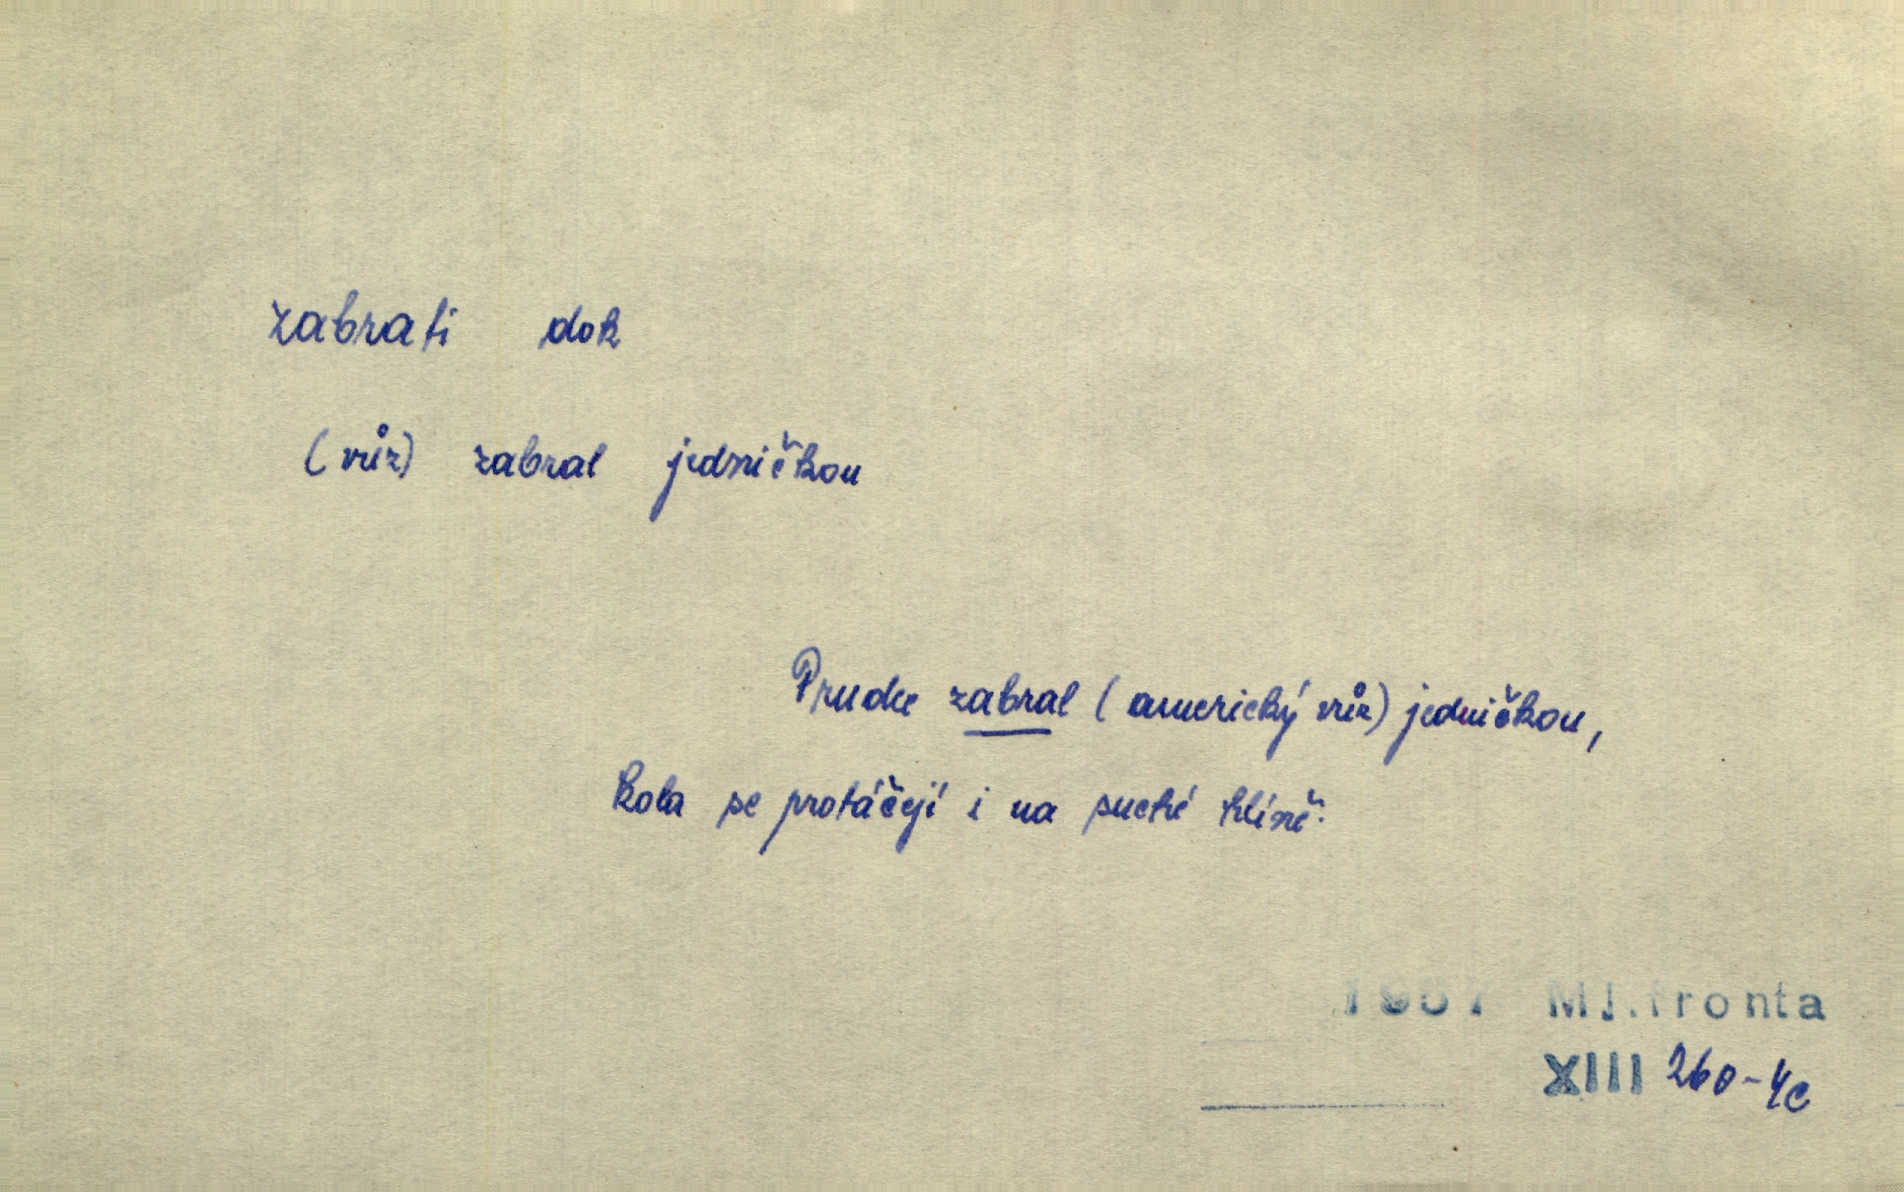 zabrati dok
(vůz) zabral jedničkou
Prudce zabral (americký vůz) jedničkou,
kola se protáčejí i na suché hlíně.
1957 Ml.fronta
XIII 260-4c